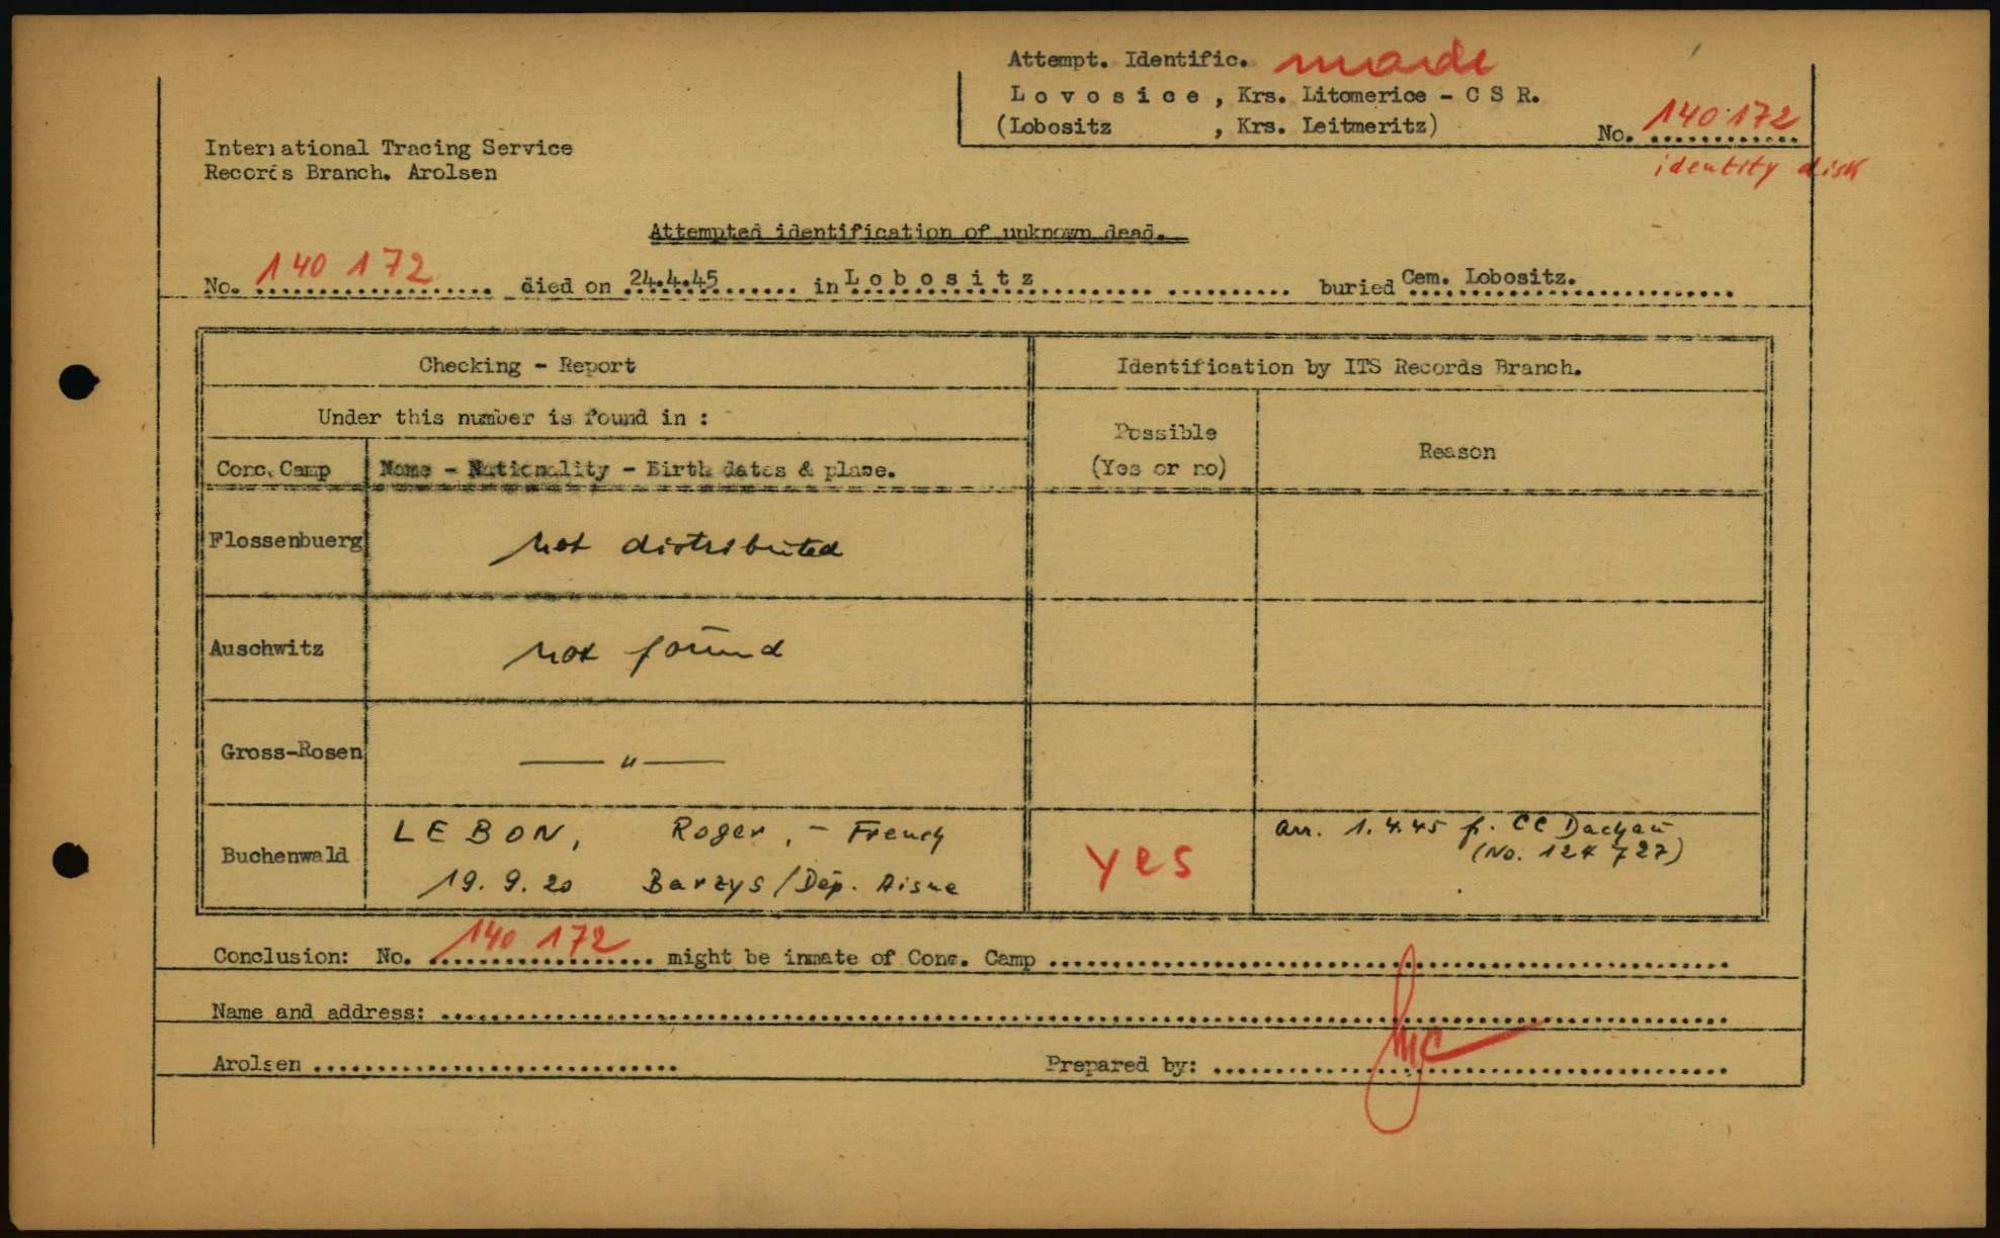 Attempt. Identific. made
L o v o s i c e , Krs. Litomerice - C S R.
(Lobositz , Krs. Leitmeritz)
No. 140 172
identity disk
International Tracing Service
Records Branch. Arolsen
Attempted identification of unknown dead.
No. 140 172 died on 24.4.45 in L o b o s i t z buried Cem. Lobositz.
Checking - Report
Identification by ITS Records Branch.
Under this number is found in :
Possible
(Yes or no)
Reason
Conc. Camp
Name - Nationality - Birth dates & place.
Flossenbuerg
not distributed
Auschwitz
not found
Gross-Rosen
— " —
Buchenwald
LE BON, Roger, - French
19. 9. 20 Barzys / Dép. Aisne
yes
arr. 1.4.45 f. CC Dachau
(No. 124 727)
Conclusion: No. 140 172 might be inmate of Conc. Camp
Name and address:
Arolsen
Prepared by: